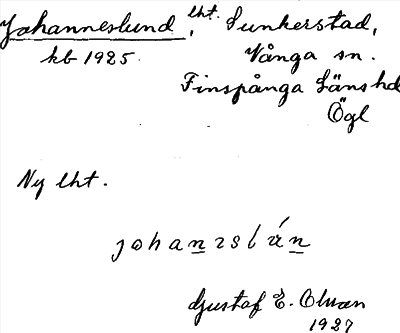 Johanneslund, lht. Sunkerstad,
kb 1925. Vånga sn.
Finspånga Läns hd
Ögl
Ny lht.
Gustaf E. Olson
1927